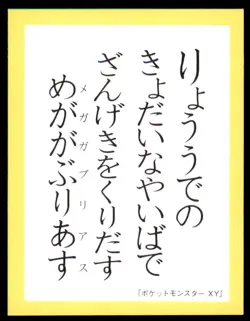 りょううでの
きょだいなやいばで
ざんげきをくりだす
めががぶりあす
メガガブリアス
『ポケットモンスター XY』